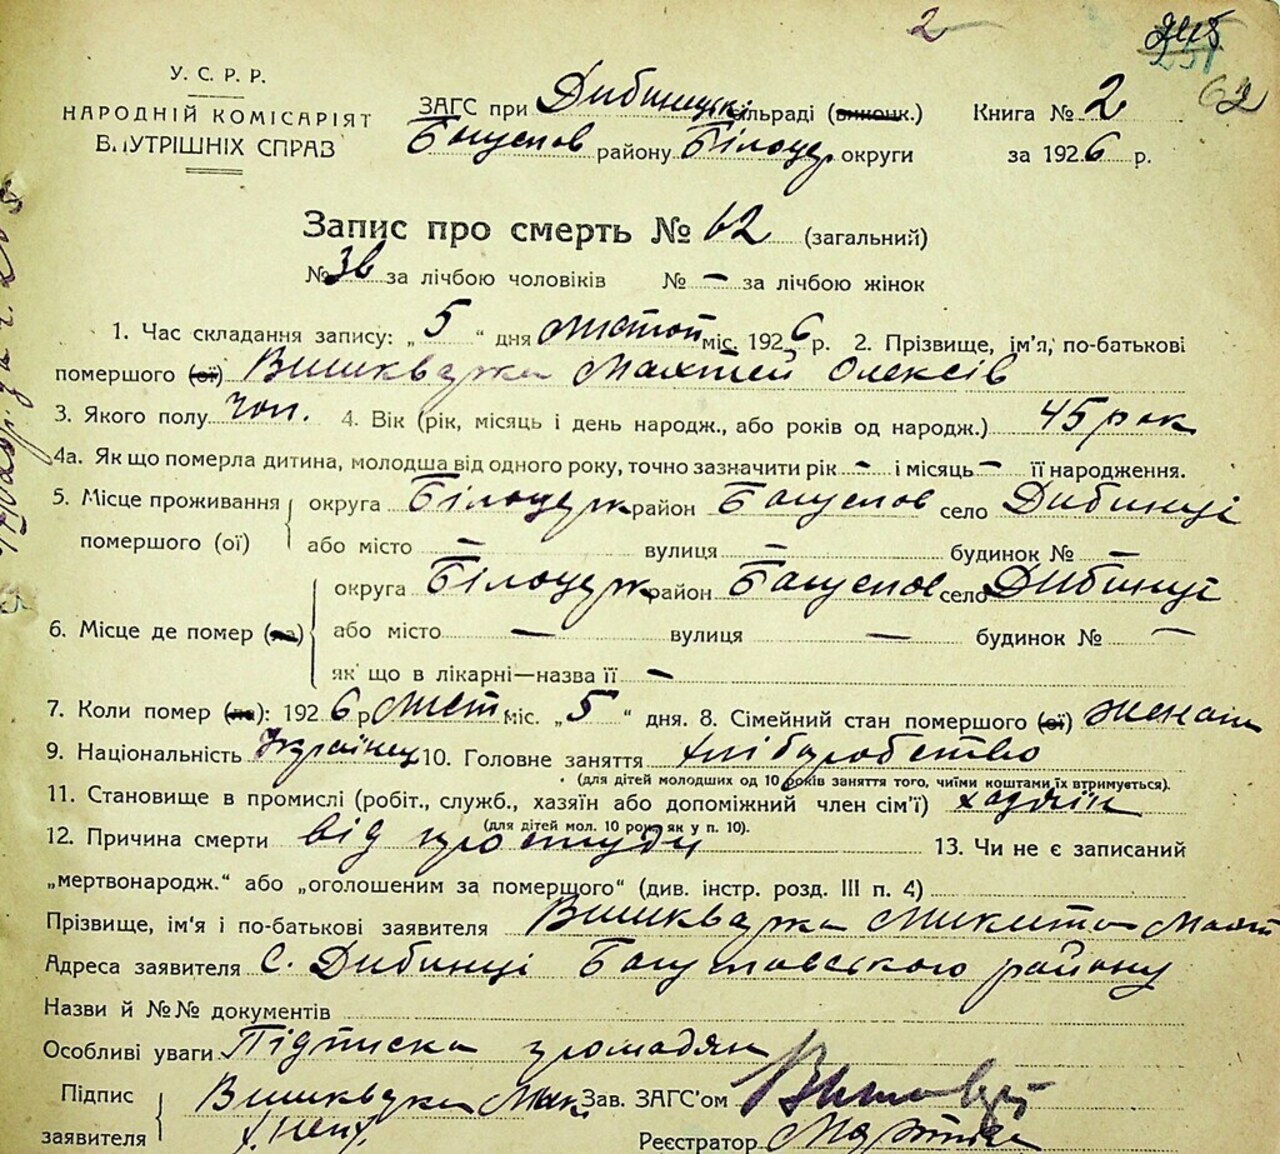 2
62
У. С. Р. Р.
НАРОДНІЙ КОМІСАРІЯТ
ВНУТРІШНІХ СПРАВ
ЗАГС при Дибинецькі сільраді (виконк.)
Богуслов району Білоцер округи
Книга № 2
за 1926 р.
Запис про смерть № 62 (загальний)
№ 36 за лічбою чоловіків № – за лічбою жінок
1. Час складання запису: „ 5 “ дня листоп міс. 1926 р. 2. Прізвище, ім'я, по-батькові
помершого (ої) Вишкварка Махтей Олексів
3. Якого полу чол. 4. Вік (рік, місяць і день народж., або років од народж.) 45 рок
4а. Як що померла дитина, молодша від одного року, точно зазначити рік – і місяць – її народження.
5. Місце проживання помершого (ої) округа Білоцерк район Богуслов село Дибинці
або місто – вулиця – будинок № –
6. Місце де помер (ла) округа Білоцерк район Богуслов село Дибинці
або місто – вулиця – будинок № –
як що в лікарні—назва її –
7. Коли помер (ла): 1926 р лист міс. „ 5 “ дня. 8. Сімейний стан помершого (ої) женат
9. Національність Українец 10. Головне заняття хліборобство
(для дітей молодших од 10 років заняття того, чиїми коштами їх втримується).
11. Становище в промислі (робіт., служб., хазяїн або допоміжний член сім'ї) хазяїн
(для дітей мол. 10 років як у п. 10).
12. Причина смерти від простуди 13. Чи не є записаний
„мертвонародж.“ або „оголошеним за померщого“ (див. інстр. розд. III п. 4)
Прізвище, ім'я і по-батькові заявителя Вишкварка Микита Махт
Адреса заявителя с. Дибинці Богуславського району
Назви й №№ документів
Особливі уваги Підписка громадян
Підпис заявителя Вишкварка Зав. ЗАГС'ом
Реєстратор